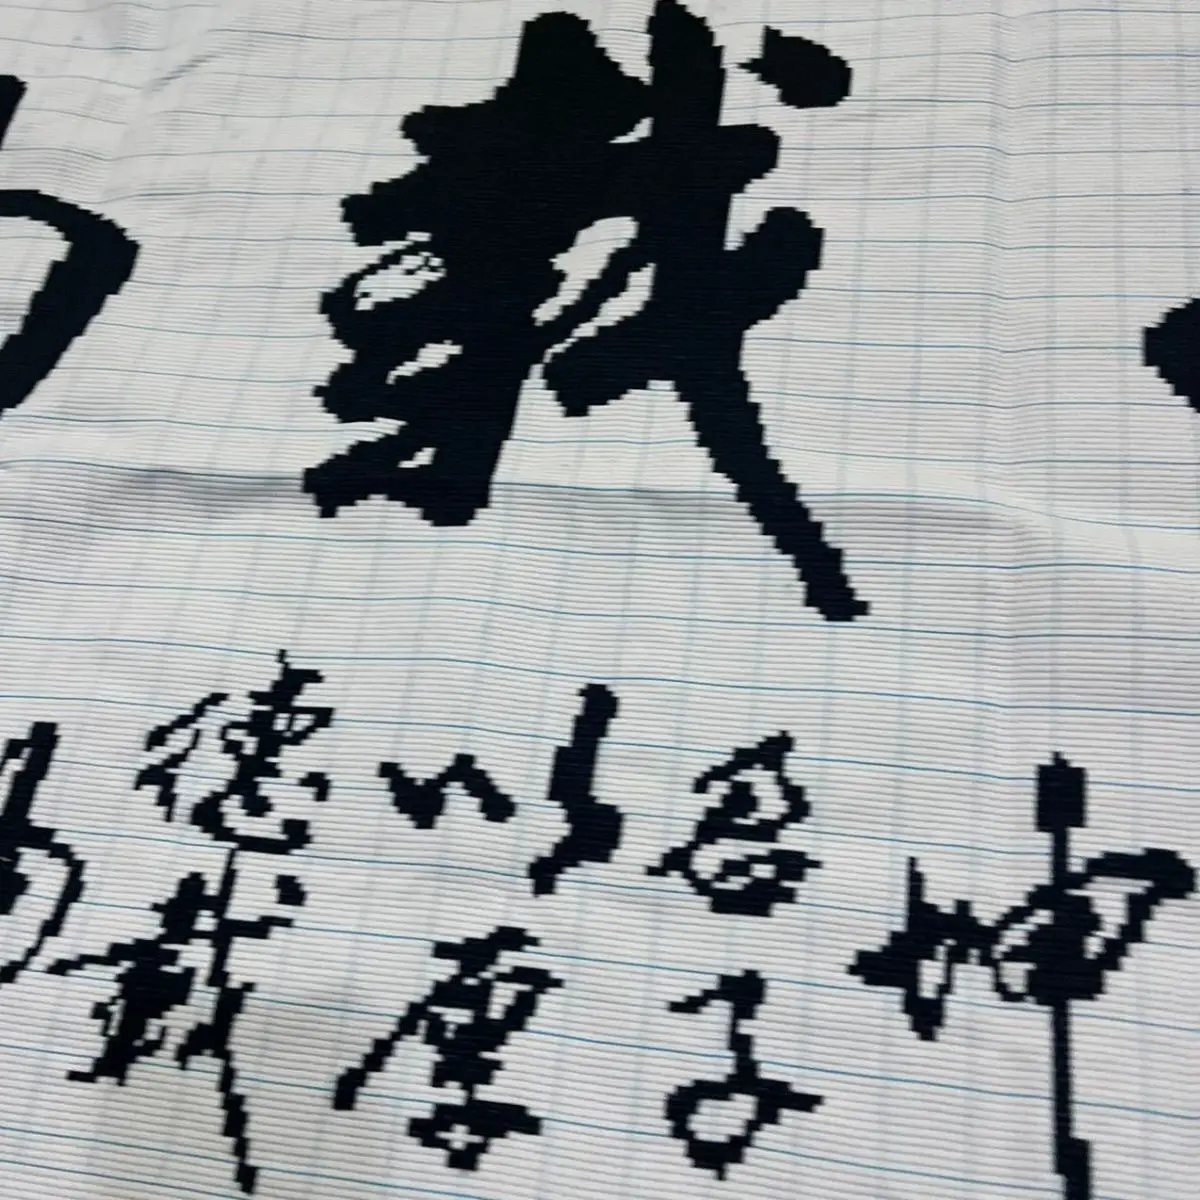 載
坤
君子
以厚
德載